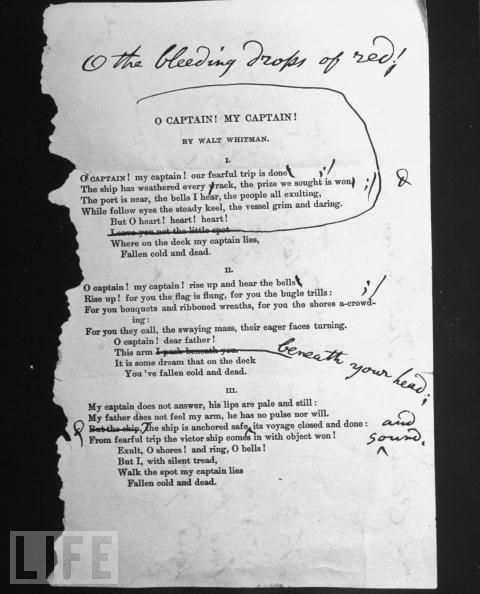 O the bleeding drops of red!
O CAPTAIN! MY CAPTAIN!
BY WALT WHITMAN.
I.
O CAPTAIN! my captain! our fearful trip is done ;/
The ship has weathered every wrack, the prize we sought is won ;/
The port is near, the bells I hear, the people all exulting,
While follow eyes the steady keel, the vessel grim and daring.
But O heart! heart! heart!
Leave you not the little spot
Where on the deck my captain lies,
Fallen cold and dead.
II.
O captain! my captain! rise up and hear the bells ;/
Rise up! for you the flag is flung, for you the bugle trills:
For you bouquets and ribboned wreaths, for you the shores a-crowd-
ing:
For you they call, the swaying mass, their eager faces turning.
O captain! dear father!
This arm I push beneath you. beneath your head;
It is some dream that on the deck
You've fallen cold and dead.
III.
My captain does not answer, his lips are pale and still:
My father does not feel my arm, he has no pulse nor will.
But the ship, The ship is anchored safe, its voyage closed and done: and sound,
From fearful trip the victor ship comes in with object won!
Exult, O shores! and ring, O bells!
But I, with silent tread,
Walk the spot my captain lies
Fallen cold and dead.
LIFE